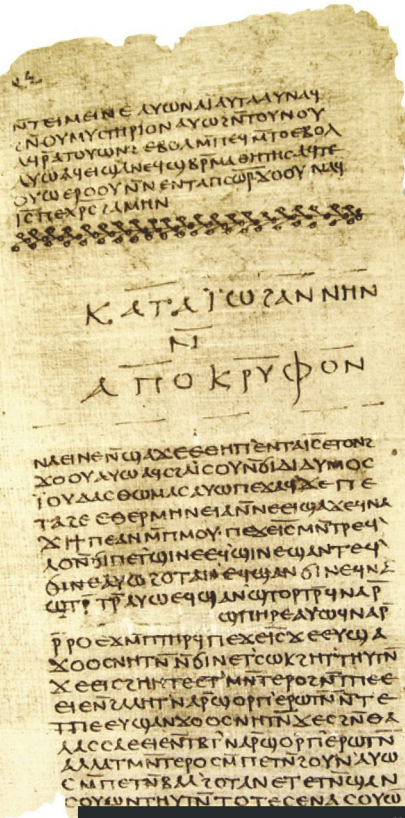 ⲛ̄ⲧⲉⲓⲙⲉⲓⲛⲉ ⲁⲩⲱ ⲛⲁⲓ ⲁⲩⲧⲁⲁⲩ ⲛⲁϥ
ϩⲛ̄ ⲟⲩⲙⲩⲥⲧⲏⲣⲓⲟⲛ ⲁⲩⲱ ϩⲛ̄ ⲧⲟⲩⲛⲟⲩ
ⲁϥⲣ̄ⲁⲧⲟⲩⲱⲛϩ ⲉⲃⲟⲗ ⲙ̄ⲡⲉϥⲙ̄ⲧⲟ ⲉⲃⲟⲗ
ⲁⲩⲱ ⲁϥⲉⲓ ϣⲁ ⲛⲉϥϣⲃⲣ̄ⲙⲁⲑⲏⲧⲏⲥ ⲁϥⲧⲉ
ⲟⲩⲱ ⲉⲣⲟⲟⲩ ⲛ̄ⲛⲉⲛⲧⲁⲡⲥⲱ̅ⲣ̅ ϫⲟⲟⲩ ⲛⲁϥ
ⲓ̅ⲥ̅ ⲡⲉⲭ̅ⲣ̅ⲥ̅ ϩⲁⲙⲏⲛ
ⲕⲁⲧⲁ ⲓ̈ⲱϩⲁⲛⲛⲏⲛ
ⲛ̄
ⲁⲡⲟⲕⲣⲩⲫⲟⲛ
ⲛⲁⲉⲓ ⲛⲉ ⲛ̄ϣⲁϫⲉ ⲉⲑⲏⲡ ⲉⲛⲧⲁⲓ̅ⲥ̅ ⲉⲧⲟⲛϩ
ϫⲟⲟⲩ ⲁⲩⲱ ⲁϥⲥϩⲁⲓ̈ⲥⲟⲩ ⲛ̄ϭⲓ ⲇⲓⲇⲩⲙⲟⲥ
ⲓ̈ⲟⲩⲇⲁⲥ ⲑⲱⲙⲁⲥ ⲁⲩⲱ ⲡⲉϫⲁϥ ϫⲉ ⲡⲉ
ⲧⲁϩⲉ ⲉⲑⲉⲣⲙⲏⲛⲉⲓⲁ ⲛ̄ⲛⲉⲉⲓϣⲁϫⲉ ϥⲛⲁ
ϫⲓ ϯⲡⲉ ⲁⲛ ⲙ̄ⲡⲙⲟⲩ ⲡⲉϫⲉ ⲓ̅ⲥ̅ ⲙⲛ̄ⲧⲣⲉϥ
ⲗⲟ ⲛ̄ϭⲓ ⲡⲉⲧϣⲓⲛⲉ ⲉϥϣⲓⲛⲉ ϣⲁⲛⲧⲉϥ
ϭⲓⲛⲉ ⲁⲩⲱ ϩⲟⲧⲁⲛ ⲉϥϣⲁⲛϭⲓⲛⲉ ϥⲛⲁ
ϣⲧⲣ̄ⲧⲣ̄ ⲁⲩⲱ ⲉϥϣⲁⲛϣⲧⲟⲣⲧⲣ̄ ϥⲛⲁⲣ̄
ϣⲡⲏⲣⲉ ⲁⲩⲱ ϥⲛⲁⲣ̄
ⲣ̄ⲣⲟ ⲉϫⲙ̄ ⲡⲧⲏⲣϥ ⲡⲉϫⲉ ⲓ̅ⲥ̅ ϫⲉ ⲉⲩϣⲁ
ϫⲟⲟⲥ ⲛⲏⲧⲛ̄ ⲛ̄ϭⲓ ⲛⲉⲧⲥⲱⲕ ϩⲏⲧ ⲧⲏⲩⲧⲛ̄
ϫⲉ ⲉⲓⲥϩⲏⲏⲧⲉ ⲉⲧⲙⲛ̄ⲧⲉⲣⲟ ϩⲛ̄ ⲧⲡⲉ ⲉ
ⲉⲓⲉ ⲛ̄ϩⲁⲗⲏⲧ ⲛⲁⲣ̄ ϣⲟⲣⲡ ⲉⲣⲱⲧⲛ̄ ⲛ̄ⲧⲉ
ⲧⲡⲉ ⲉⲩϣⲁⲛϫⲟⲟⲥ ⲛⲏⲧⲛ̄ ϫⲉ ⲥϩⲛ̄ ⲑⲁ
ⲗⲁⲥⲥⲁ ⲉⲉⲓⲉ ⲛ̄ⲧⲃⲧ ⲛⲁⲣ̄ ϣⲟⲣⲡ ⲉⲣⲱⲧⲛ̄
ⲁⲗⲗⲁ ⲧⲙⲛ̄ⲧⲉⲣⲟ ⲥⲙ̄ⲡⲉⲧⲛ̄ϩⲟⲩⲛ ⲁⲩⲱ
ⲥⲙ̄ⲡⲉⲧⲛ̄ⲃⲁⲗ ϩⲟⲧⲁⲛ ⲉⲧⲉⲧⲛ̄ϣⲁⲛ
ⲥⲟⲩⲱⲛ ⲧⲏⲩⲧⲛ̄ ⲧⲟⲧⲉ ⲥⲉⲛⲁⲥⲟⲩⲱ